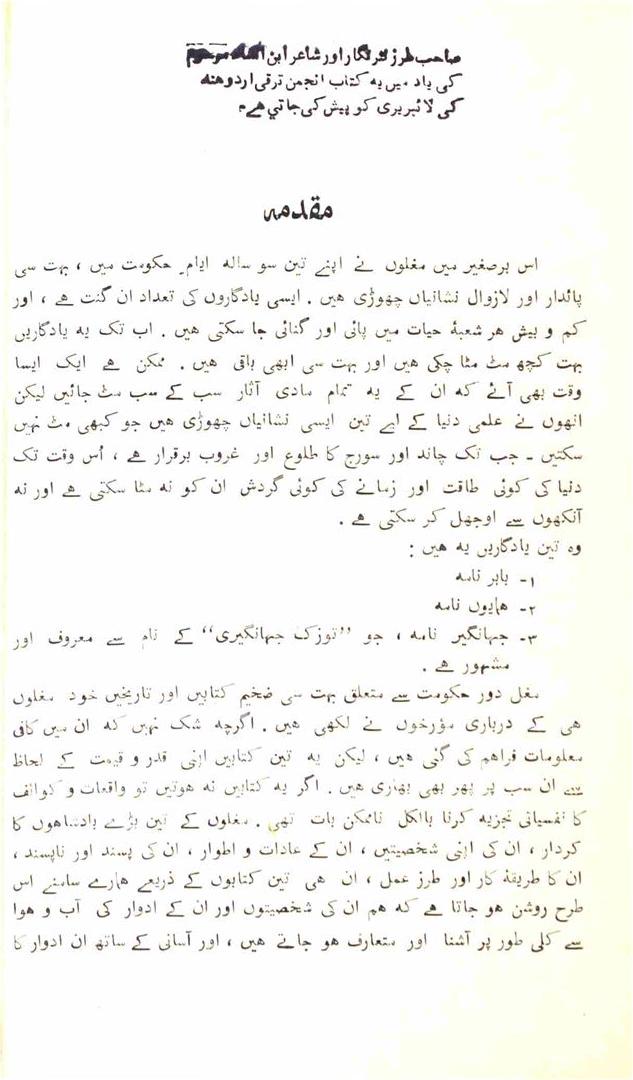 صاحب طرز نثر نگار اور شاعر ابن انشاء مرحوم
کی یاد میں یہ کتاب انجمن ترقی اردو ھند
کی لائبریری کو پیش کی جاتی ھے۔
مقدمہ
اس برصغیر میں مغلوں نے اپنے تین سو سالہ ایامِ حکومت میں ، بہت سی
پائدار اور لازوال نشانیاں چھوڑی ھیں . ایسی یادگاروں کی تعداد ان گنت ھے ، اور
کم و بیش ھر شعبۂ حیات میں پائی اور گنائی جا سکتی ھیں . اب تک یہ یادگاریں
بہت کچھ مٹ مٹا چکی ھیں اور بہت سی ابھی باقی ھیں . ممکن ھے ایک ایسا
وقت بھی آئے کہ ان کے یہ تمام مادی آثار سب کے سب مٹ جائیں لیکن
انھوں نے علمی دنیا کے لیے تین ایسی نشانیاں چھوڑی ھیں جو کبھی مٹ نہیں
سکتیں ـ جب تک چاند اور سورج کا طلوع اور غروب برقرار ھے ، اُس وقت تک
دنیا کی کوئی طاقت اور زمانے کی کوئی گردش ان کو نہ مٹا سکتی ھے اور نہ
آنکھوں سے اوجھل کر سکتی ھے .
وہ تین یادگاریں یہ ھیں :
۱ـ بابر نامہ
۲ـ ھمایوں نامہ
۳ـ جہانگیر نامہ ، جو ''توزک جہانگیری'' کے نام سے معروف اور
مشہور ھے .
مغل دور حکومت سے متعلق بہت سی ضخیم کتابیں اور تاریخیں خود مغلوں
ھی کے درباری مؤرخوں نے لکھی ھیں . اگرچہ شک نہیں کہ ان میں کافی
معلومات فراھم کی گئی ھیں ، لیکن یہ تین کتابیں اپنی قدر و قیمت کے لحاظ
سے ان سب پر پھر بھی بھاری ھیں . اگر یہ کتابیں نہ ھوتیں تو واقعات و کوائف
کا نفسیاتی تجزیہ کرنا بالکل ناممکن بات تھی . مغلوں کے تین بڑے بادشاھوں کا
کردار ، ان کی اپنی شخصیتیں ، ان کے عادات و اطوار ، ان کی پسند اور ناپسند ،
ان کا طریقۂ کار اور طرز عمل ، ان ھی تین کتابوں کے ذریعے ھمارے سامنے اس
طرح روشن ھو جاتا ھے کہ ھم ان کی شخصیتوں اور ان کے ادوار کی آب و ھوا
سے کلی طور پر آشنا اور متعارف ھو جاتے ھیں ، اور آسانی کے ساتھ ان ادوار کا